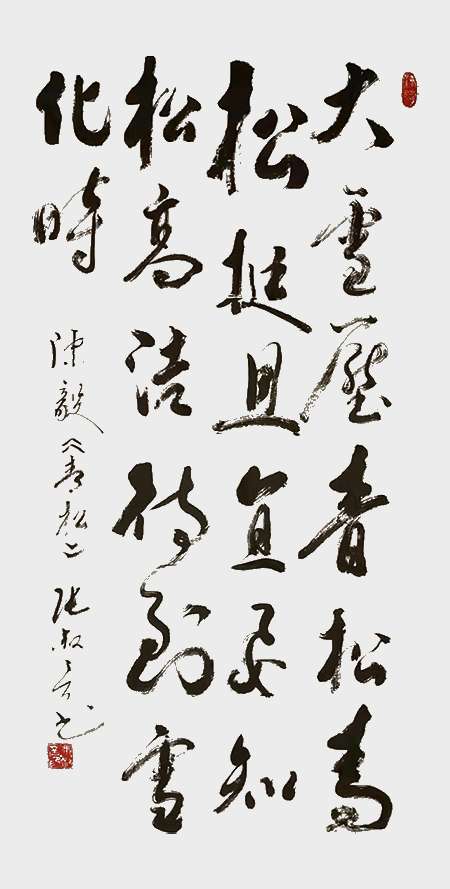 大雪壓青松青
松挺且直要知
松高洁待到雪
化時
陈毅《青松》 张叔 书